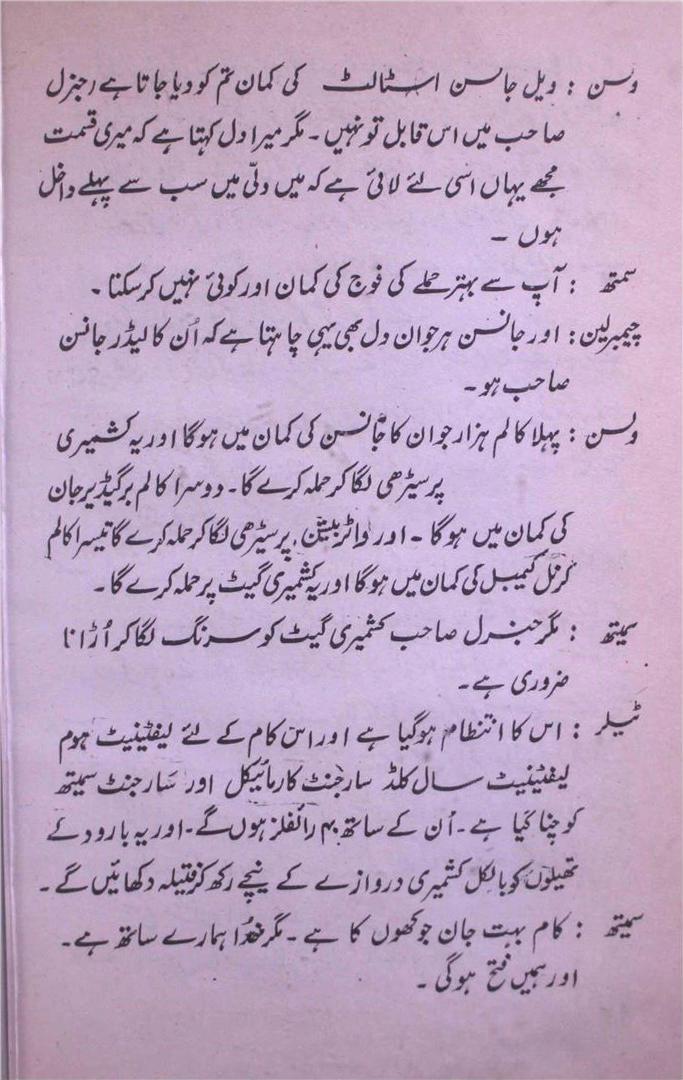 ولسن : ویل جانسن اسٹالٹ کی کمان تم کو دیا جاتا ہے رجنرل
صاحب میں اس قابل تو نہیں ۔ مگر میرا دل کہتا ہے کہ میری قسمت
مجھے یہاں اسی لئے لائی ہے کہ میں دلّی میں سب سے پہلے داخل
ہوں ۔
سمتھ : آپ سے بہتر حملے کی فوج کی کمان اور کوئی نہیں کر سکتا ۔
چیمبرلین : اور جانسن ہر جوان دل بھی یہی چاہتا ہے کہ اُن کا لیڈر جانسن
صاحب ہو ۔
ولسن : پہلا کالم ہزار جوان کا جانسن کی کمان میں ہوگا اور یہ کشمیری
پر سیڑھی لگا کر حملہ کرے گا ۔ دوسرا کالم برگیڈیر جان
کی کمان میں ہوگا ۔ اور واٹر بیٹن پر سیڑھی لگا کر حملہ کرے گا تیسرا کالم
کرنل کیمبل کی کمان میں ہوگا اور یہ کشمیری گیٹ پر حملہ کرے گا ۔
سمیتھ : مگر جنرل صاحب کشمیری گیٹ کو سرنگ لگا کر اُڑانا
ضروری ہے ۔
ٹیلر : اس کا انتظام ہوگیا ہے اور اس کام کے لئے لیفٹینیٹ ہوم
لیفٹینیٹ سال کلڈ سارجنٹ کارمائیکل اور سارجنٹ سمیتھ
کو چنا گیا ہے ۔ اُن کے ساتھ ۴ رائفلز ہوں گے ۔ اور یہ بارود کے
تھیلوں کو بالکل کشمیری دروازے کے نیچے رکھ کر فتیلہ دکھائیں گے ۔
سمیتھ : کام بہت جان جوکھوں کا ہے ۔ مگر خدا ہمارے ساتھ ہے ۔
اور ہمیں فتح ہوگی ۔